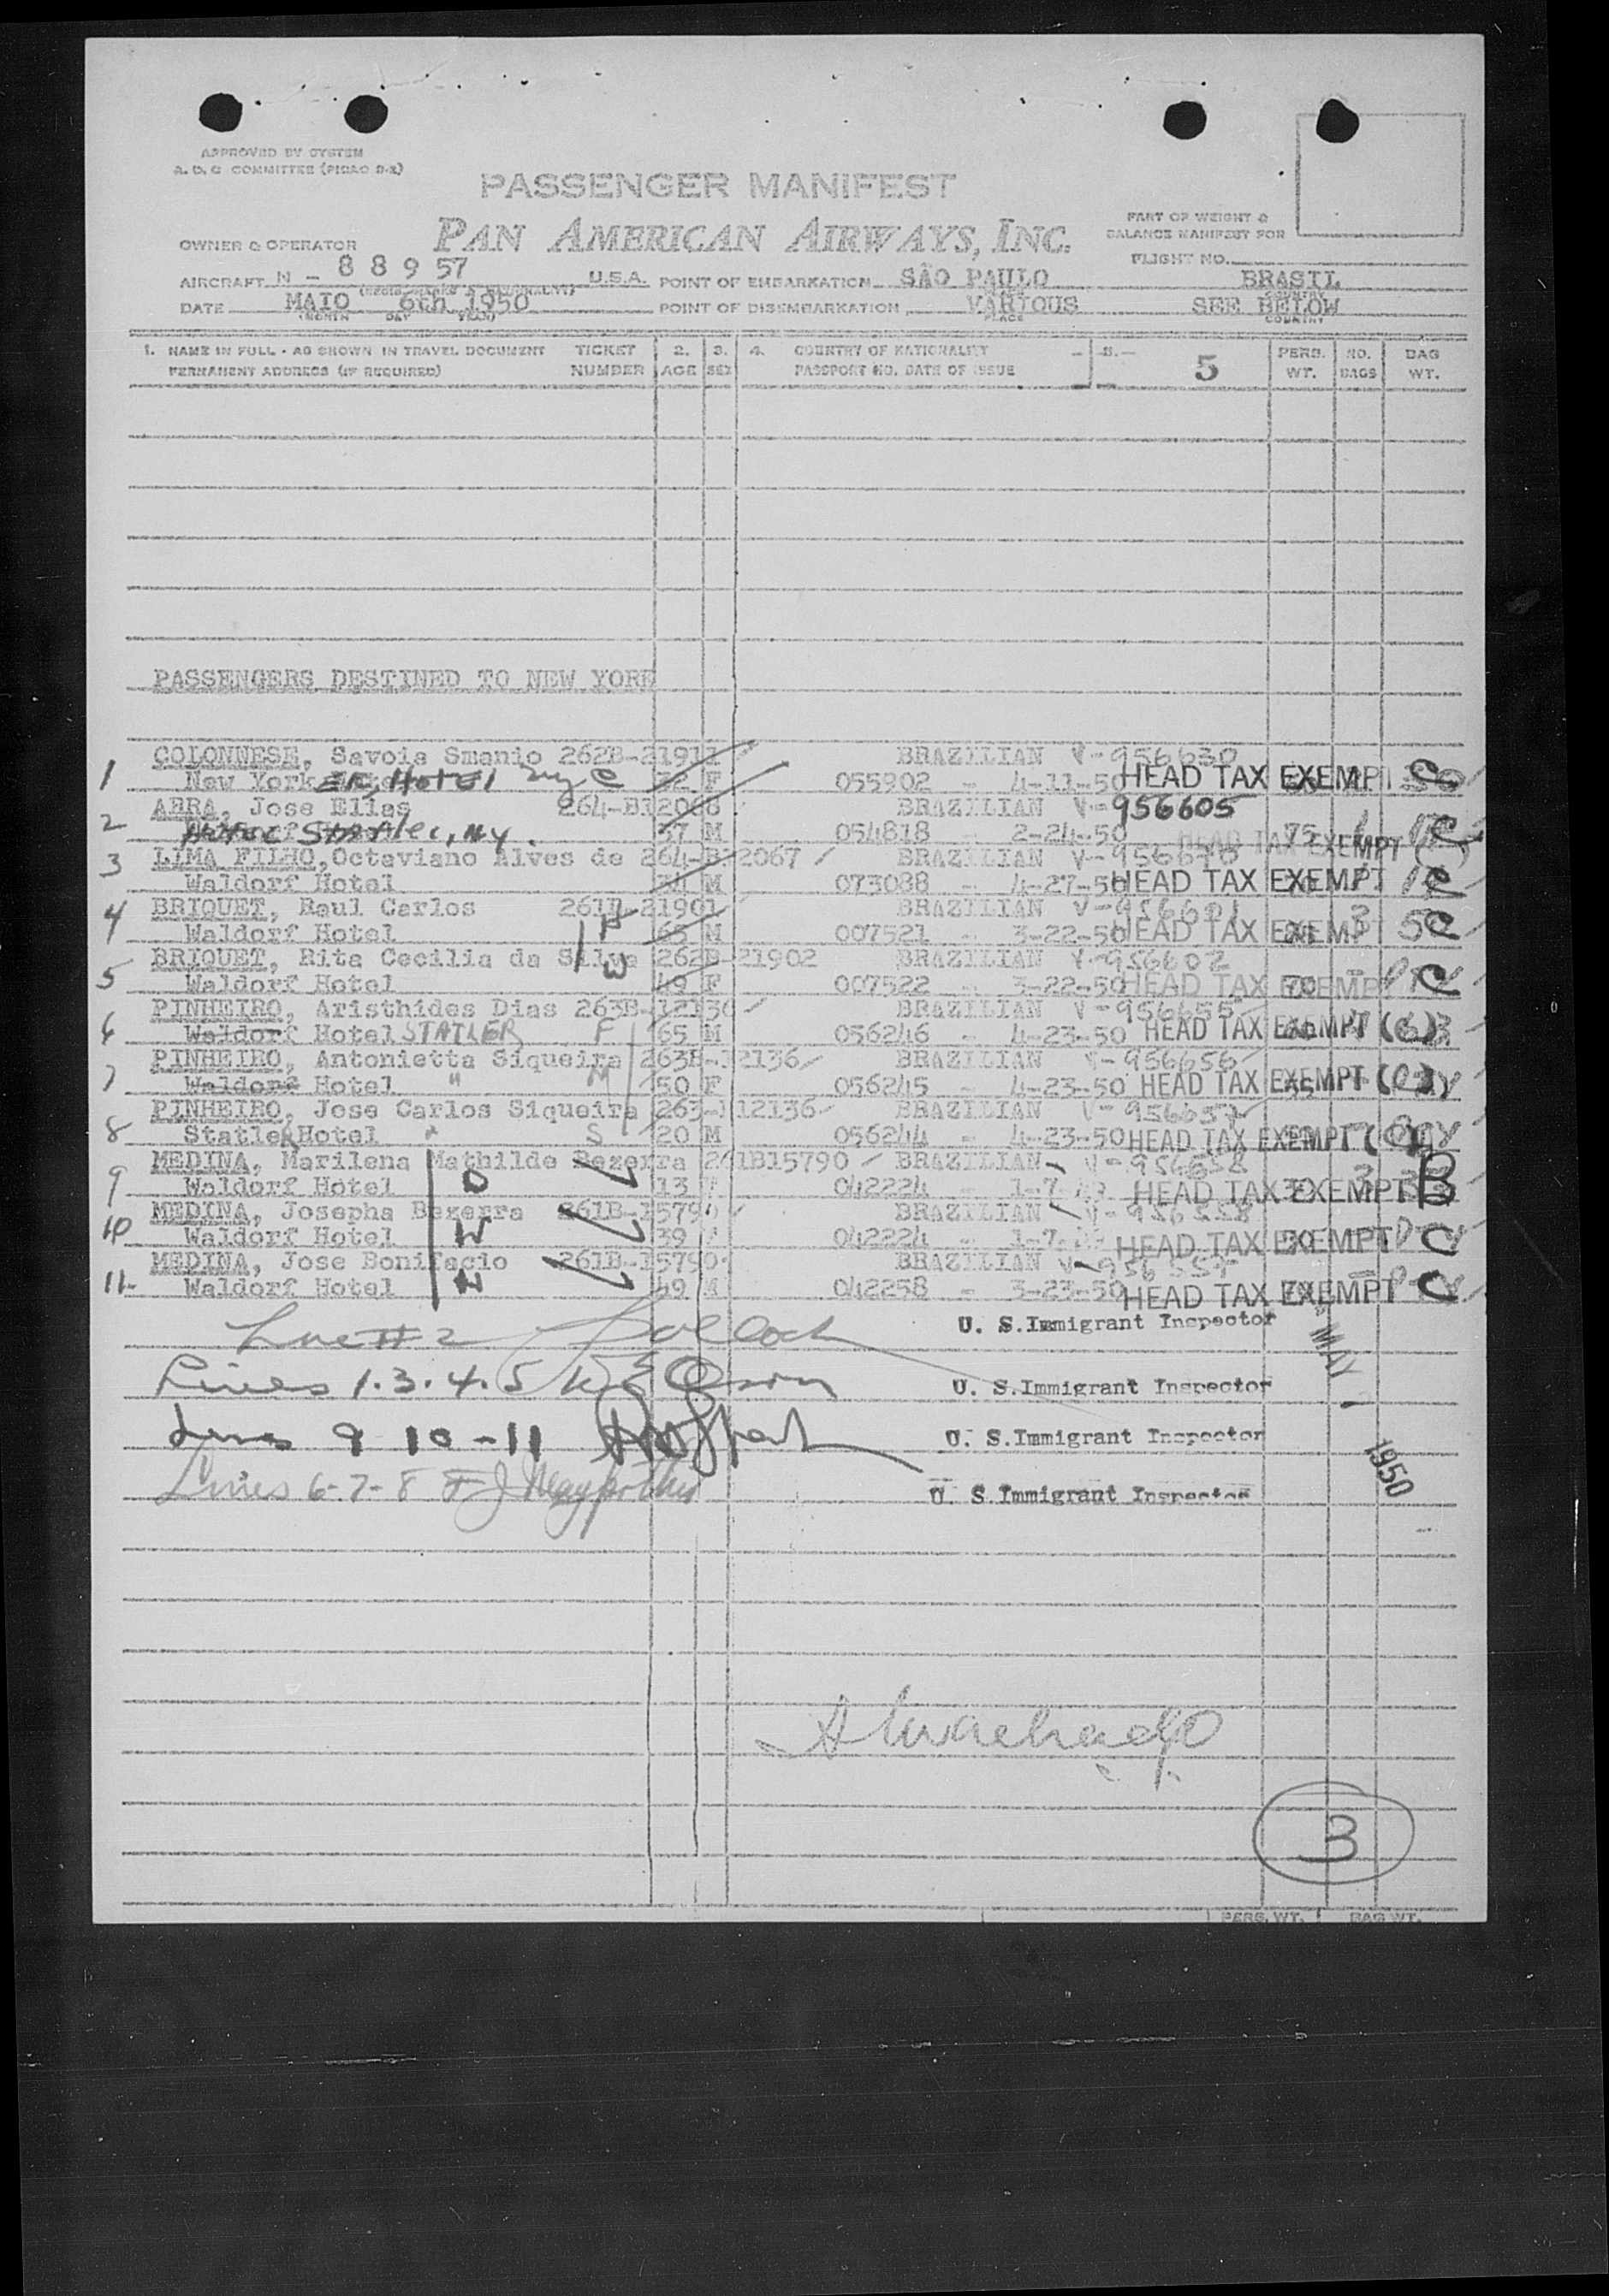 APPROVED BY SYSTEM
A. D. C COMMITTEE (PICAO D-2)
PASSENGER MANIFEST
PAN AMERICAN AIRWAYS, INC.
PART OF WEIGHT &
BALANCE MANIFEST FOR
FLIGHT NO.
OWNER & OPERATOR
AIRCRAFT N - 88957 U.S.A. POINT OF EMBARKATION SÃO PAULO BRASIL
DATE MAIO 6th 1950 POINT OF DISEMBARKATION VARIOUS SEE BELOW
(MONTH DAY YEAR) PLACE COUNTRY
1. NAME IN FULL - AS SHOWN IN TRAVEL DOCUMENT TICKET 2. 3. 4. COUNTRY OF NATIONALITY 5. 5 PERS. NO. BAG
PERMANENT ADDRESS (IF REQUIRED) NUMBER AGE SEX PASSPORT NO. DATE OF ISSUE WT. BAGS WT.
PASSENGERS DESTINED TO NEW YORK
COLONNESE, Savoia Smanio 262B-21911 BRAZILIAN V-956630
1 New YorkER, Hotel NYC 32 F 055902 - 4-11-50 HEAD TAX EXEMPT
ABRA, Jose Elias 264-B12068 BRAZILIAN V-956605
2 M 054818 - 2-24-50 75 HEAD TAX EXEMPT
3 LIMA FILHO, Octaviano Alves de 264-B-12067 BRAZILIAN
Waldorf Hotel M 073088 - 4-27-50 HEAD TAX EXEMPT
4 BRIQUET, Raul Carlos 261B-21901 BRAZILIAN V-956601
Waldorf Hotel 63 M 007521 - 3-22-50 HEAD TAX EXEMPT
BRIQUET, Rita Cecilia da Silva 262B-21902 BRAZILIAN V-956602
5 Waldorf Hotel 49 F 007522 - 3-22-50 HEAD TAX EXEMPT C
PINHEIRO, Aristhides Dias 263B-12136 BRAZILIAN V-956655
6 Waldorf Hotel STATLER F 65 M 056246 - 4-23-50 HEAD TAX EXEMPT (C)
PINHEIRO, Antonietta Siqueira 263B-12136 BRAZILIAN V-956656
7 Waldorf Hotel " M 50 F 056245 - 4-23-50 HEAD TAX EXEMPT (C)
PINHEIRO, Jose Carlos Siqueira 263-B12136 BRAZILIAN V-956657
8 Statler Hotel S 20 M 056244 - 4-23-50 HEAD TAX EXEMPT (C)
MEDINA, Marilena Mathilde Bezerra 261B15790 BRAZILIAN V-956558
9 Waldorf Hotel D 13 F 042224 - 1-7 HEAD TAX EXEMPT B
MEDINA, Josepha Bezerra 261B-15790 BRAZILIAN V-956558
10 Waldorf Hotel W 39 F 042224 - 1-7 HEAD TAX EXEMPT C
MEDINA, Jose Bonifacio 261B-15790 BRAZILIAN
11- Waldorf Hotel H 49 M 042258 - 3-23-50 HEAD TAX EXEMPT C
Line # 2 Pollock U. S. Immigrant Inspector
Lines 1.3.4.5 U. S. Immigrant Inspector
Lines 9 10-11 U. S. Immigrant Inspector
Lines 6-7-8 U. S. Immigrant Inspector
MAY
1950
3
PERS. WT. BAG WT.